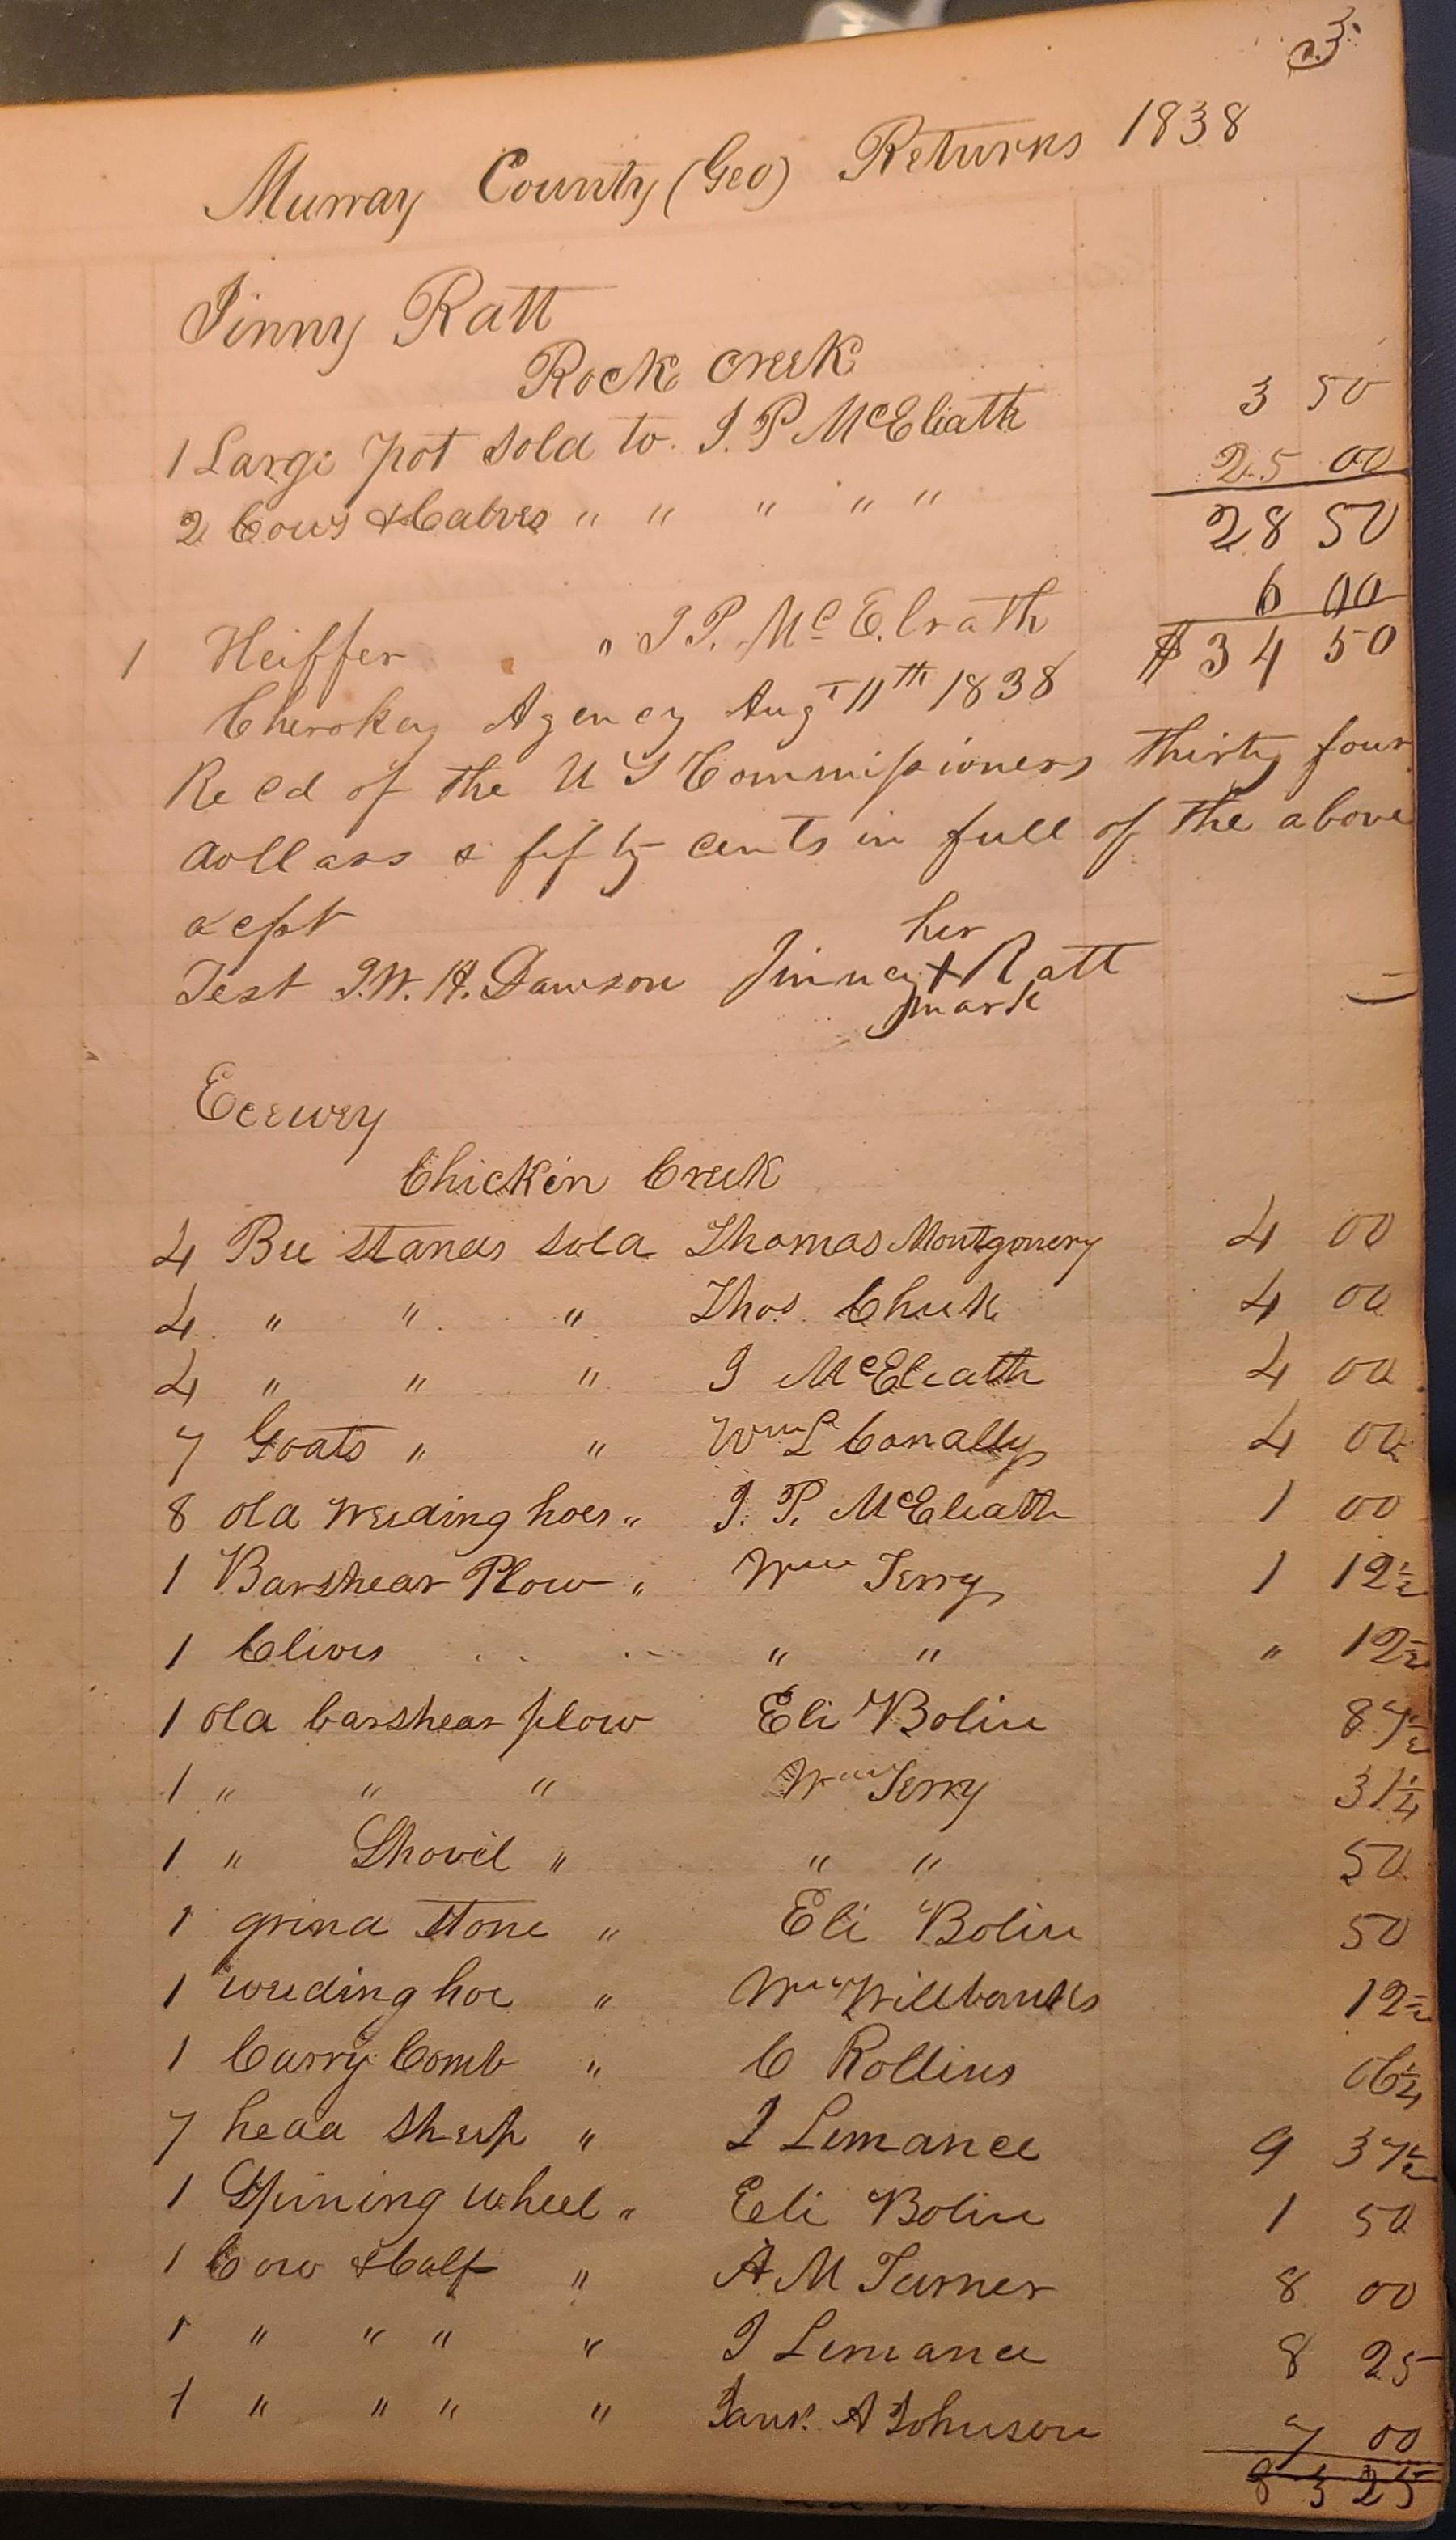 3.
Murray County (Geo) Returns 1838
Jinny Ratt
Rock Creek
1 Large pot sold to J. P. McElrath 3 50
2 Cows & Calves " " " " " 25 00
28 50
1 Heiffer " J P. Mc Elrath 6 00
$34 50
Cherokey Agency Augt 11th 1838
Recd of the U S Commissioners thirty four
dollars & fifty cents in full of the above
acpt
her
Test J. W. H. Dawson Jinney + Ratt
mark
Ecewey
Chicken Creek
4 Bee stands sold Thomas Montgomery 4 00
4 " " " Thos. Cheek 4 00
4 " " " J McElrath 4 00
7 Goats " " Wm L Conally 4 00
8 old weeding hoes " J. P. McElrath 1 00
1 Barshear Plow " Wm Terry 1 12½
1 Clivis " " " 12½
1 old barshear plow Eli Bolin 87½
1 " " " Wm Terry 31¼
1 " Shovel " " " 50
1 grind stone " Eli Bolin 50
1 weeding hoe " Wm Willbanks 12½
1 Curry Comb " C Rollins 06¼
7 head sheep " J Lemance 9 37½
1 Spining wheel " Eeli Bolin 1 50
1 Cow & Calf " A M Turner 8 00
1 " " " " J Lemance 8 25
1 " " " " A Johnson 7 00
83 25